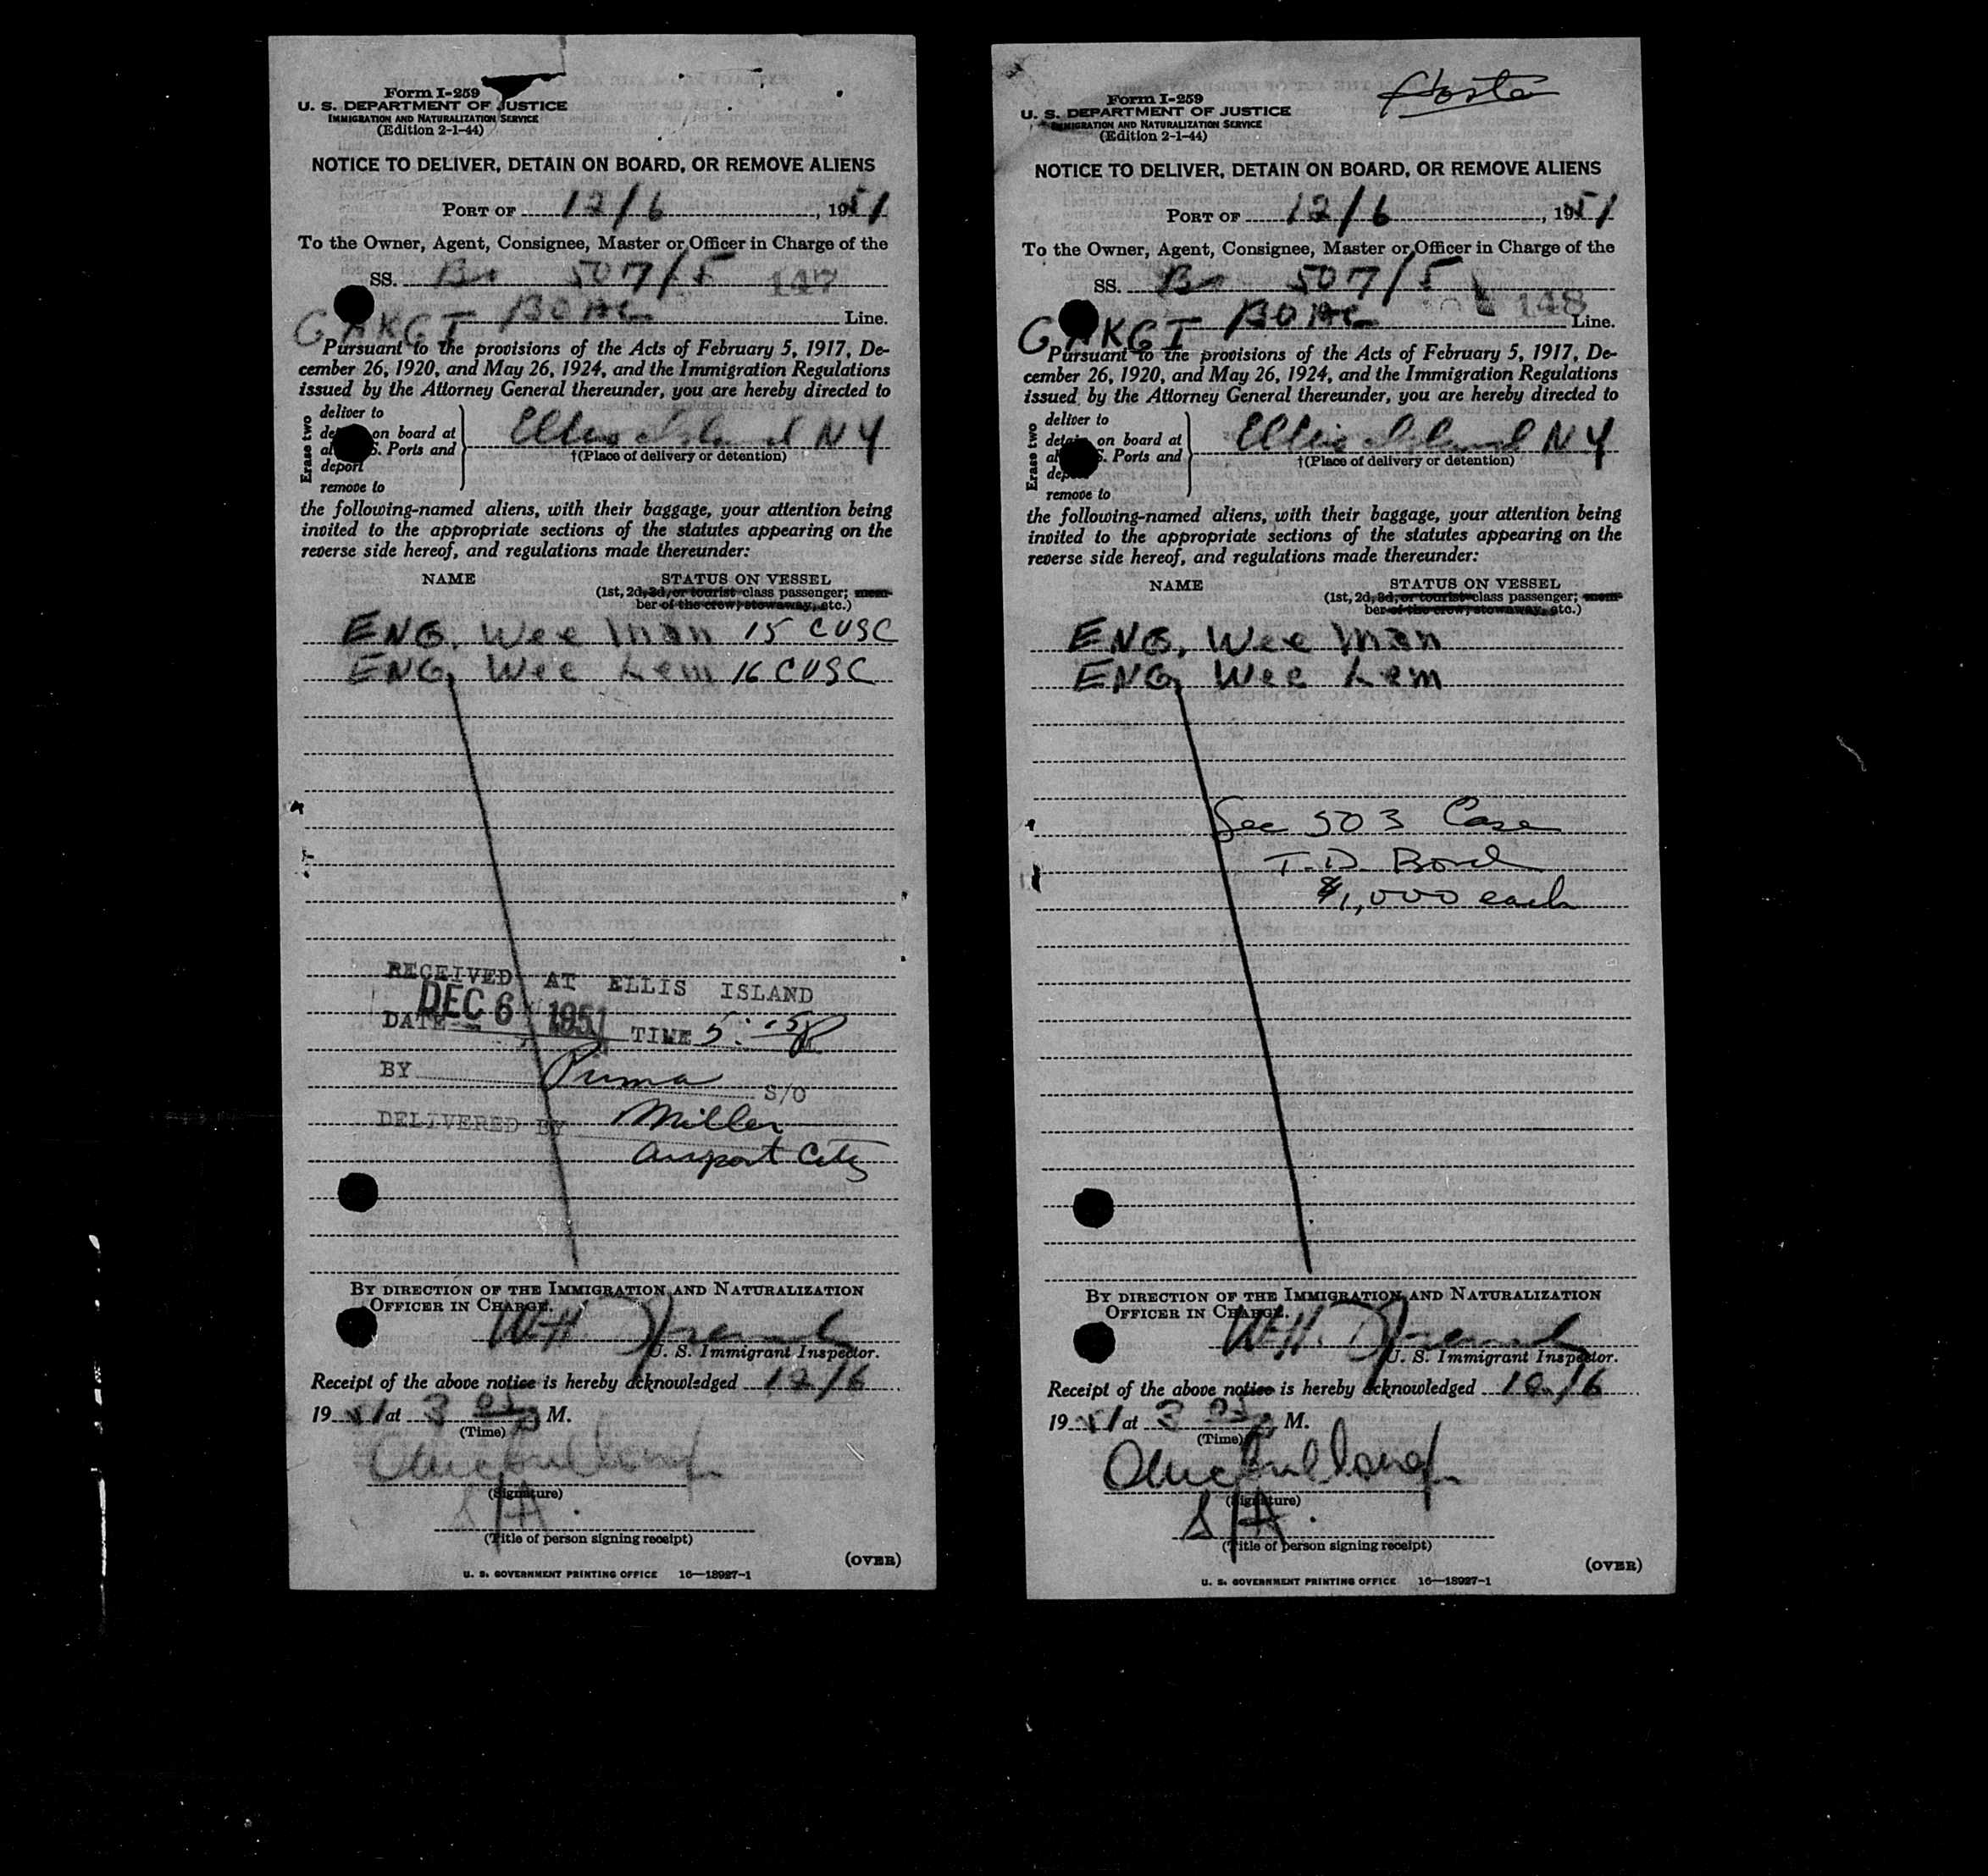 Form I-259
U. S. DEPARTMENT OF JUSTICE
IMMIGRATION AND NATURALIZATION SERVICE
(Edition 2-1-44)
NOTICE TO DELIVER, DETAIN ON BOARD, OR REMOVE ALIENS
PORT OF 12/6, 1951
To the Owner, Agent, Consignee, Master or Officer in Charge of the
SS. Ba 507/5 147
GAKGI BOAC Line.
Pursuant to the provisions of the Acts of February 5, 1917, De-
cember 26, 1920, and May 26, 1924, and the Immigration Regulations
issued by the Attorney General thereunder, you are hereby directed to
Erase two
deliver to
on board at
S. Ports and
deport
remove to
Ellis Island NY
†(Place of delivery or detention)
the following-named aliens, with their baggage, your attention being
invited to the appropriate sections of the statutes appearing on the
reverse side hereof, and regulations made thereunder:
NAME STATUS ON VESSEL
(1st, 2d, 3d, or tourist class passenger; mem-
ber of the crew, stowaway, etc.)
ENG, Wee Man 15 CUSC
ENG, Wee Lem 16 CUSC
RECEIVED AT ELLIS ISLAND
DATE DEC 6 1951 TIME
BY Puma S/O
DELIVERED BY Miller
Airport City
BY DIRECTION OF THE IMMIGRATION AND NATURALIZATION
OFFICER IN CHARGE.
W.H.
U. S. Immigrant Inspector.
Receipt of the above notice is hereby acknowledged 12/6
1951 at 3 05 P M.
(Time)
(Signature)
S/A.
(Title of person signing receipt)
(OVER)
U. S. GOVERNMENT PRINTING OFFICE 16—18927-1
Form I-259
U. S. DEPARTMENT OF JUSTICE
IMMIGRATION AND NATURALIZATION SERVICE
(Edition 2-1-44)
NOTICE TO DELIVER, DETAIN ON BOARD, OR REMOVE ALIENS
PORT OF 12/6, 1951
To the Owner, Agent, Consignee, Master or Officer in Charge of the
SS. Ba 507/5
148
GAKGI BOAC Line.
Pursuant to the provisions of the Acts of February 5, 1917, De-
cember 26, 1920, and May 26, 1924, and the Immigration Regulations
issued by the Attorney General thereunder, you are hereby directed to
Erase two
deliver to
detain on board at
S. Ports and
remove to
Ellis Island NY
†(Place of delivery or detention)
the following-named aliens, with their baggage, your attention being
invited to the appropriate sections of the statutes appearing on the
reverse side hereof, and regulations made thereunder:
NAME STATUS ON VESSEL
(1st, 2d, 3d, or tourist class passenger; mem-
ber of the crew, stowaway, etc.)
ENG, Wee Man
ENG, Wee Lem
Sec 503 Case
T.D. Bond
$1,000 each
BY DIRECTION OF THE IMMIGRATION AND NATURALIZATION
OFFICER IN CHARGE.
W.H.
U. S. Immigrant Inspector.
Receipt of the above notice is hereby acknowledged 12/6
1951 at 3 05 P M.
(Time)
(Signature)
S/A.
(Title of person signing receipt)
(OVER)
U. S. GOVERNMENT PRINTING OFFICE 16—18927-1